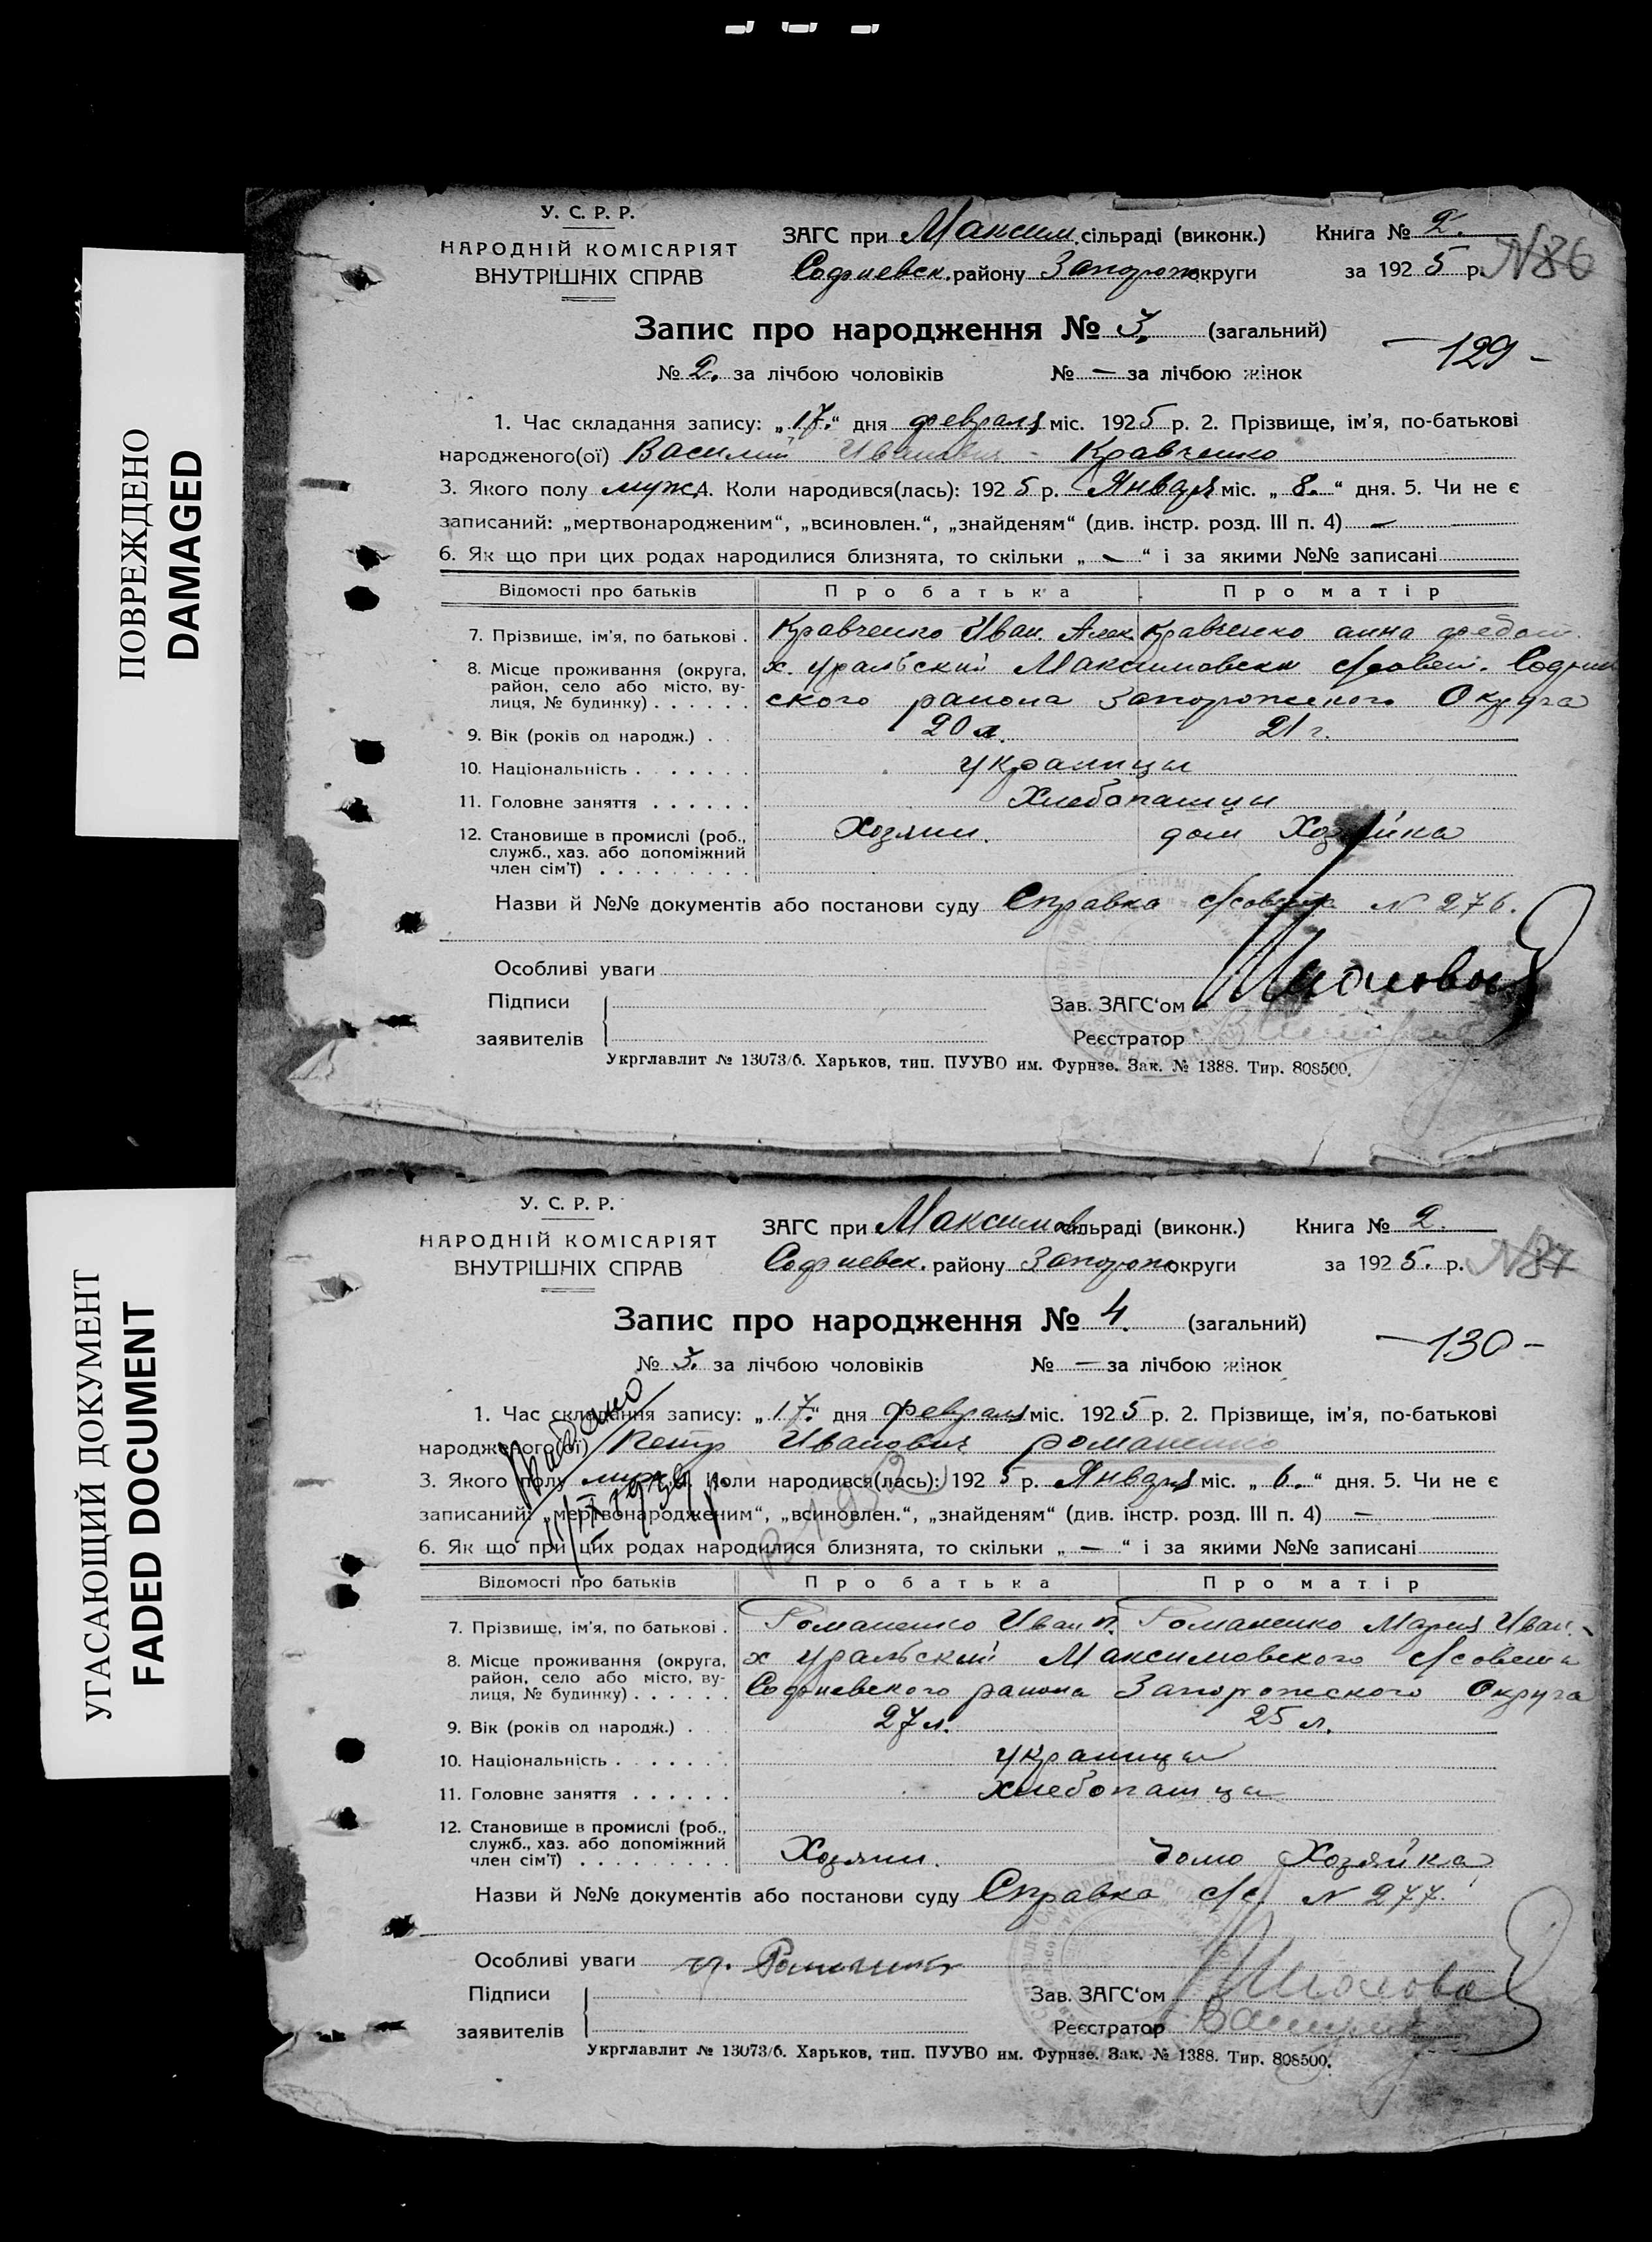 ПОВРЕЖДЕНО
DAMAGED
У. С. Р. Р.
НАРОДНІЙ КОМІСАРІЯТ
ВНУТРІШНІХ СПРАВ
ЗАГС при Максим. сільраді (виконк.) Книга № 2.
Софиевск. району Запорож. округи за 1925 р. N86
Запис про народження № 3. (загальний)
129 -
№ 2. за лічбою чоловіків № — за лічбою жінок
1. Час складання запису: „17.“ дня февраля міс. 1925 р. 2. Прізвище, ім'я, по-батькові
народженого(ої) Василий Иванович - Кравченко
3. Якого полу муж. 4. Коли народився(лась): 1925 р. Января міс. „8.“ дня. 5. Чи не є
записаний: „мертвонародженим“, „всиновлен.“, „знайденям“ (див. інстр. розд. III п. 4) —
6. Як що при цих родах народилися близнята, то скільки „—“ і за якими №№ записані
Відомості про батьків Про батька Про матір
7. Прізвище, ім'я, по батькові . Кравченко Иван. Алек. Кравченко анна федот.
8. Місце проживання (округа, район, село або місто, вулиця, № будинку) х. Уральский Максимовски с/совет. Софии
ского района Запорожского Округа
9. Вік (років од народж.) . . 20 л. 21 г.
10. Національність . украинцы
11. Головне заняття . хлебопашцы
12. Становище в промислі (роб., служб., хаз. або допоміжний член сім'ї) . Хозяин. дом Хозяйка
Назви й №№ документів або постанови суду Справка с/совета N 276.
Особливі уваги
Підписи
заявителів
Зав. ЗАГС'ом
Реєстратор
Укрглавлит № 13073/б. Харьков, тип. ПУУВО им. Фурнзе. Зак. № 1388. Тир. 808500.
УГАСАЮЩИЙ ДОКУМЕНТ
FADED DOCUMENT
У. С. Р. Р.
НАРОДНІЙ КОМІСАРІЯТ
ВНУТРІШНІХ СПРАВ
ЗАГС при Максимов. сільраді (виконк.) Книга № 2.
Софиевск. району Запорож. округи за 1925. р. N87
Запис про народження № 4. (загальний)
—130 -
№ 3. за лічбою чоловіків № — за лічбою жінок
1. Час складання запису: „17.“ дня февраля міс. 1925 р. 2. Прізвище, ім'я, по-батькові
народженого(ої) Петр Иванович романенко
3. Якого полу муж. 4. Коли народився(лась): 1925 р. Января міс. „6.“ дня. 5. Чи не є
записаний: „мертвонародженим“, „всиновлен.“, „знайденям“ (див. інстр. розд. III п. 4) —
6. Як що при цих родах народилися близнята, то скільки „—“ і за якими №№ записані
Відомості про батьків Про батька Про матір
7. Прізвище, ім'я, по батькові . Романенко Иван П. Романенко Мария Иван.
8. Місце проживання (округа, район, село або місто, вулиця, № будинку) х Уральский Максимовского с/совета
Софиевского района Запорожского Округа
9. Вік (років од народж.) . . 27 л. 25 л.
10. Національність . украинцы
11. Головне заняття . хлебопашцы
12. Становище в промислі (роб., служб., хаз. або допоміжний член сім'ї) . Хозяин. домо Хозяйка
Назви й №№ документів або постанови суду Справка с/с. N 277.
Особливі уваги
Підписи
заявителів
Зав. ЗАГС'ом
Реєстратор
Укрглавлит № 13073/б. Харьков, тип. ПУУВО им. Фурнзе. Зак. № 1388. Тир. 808500.